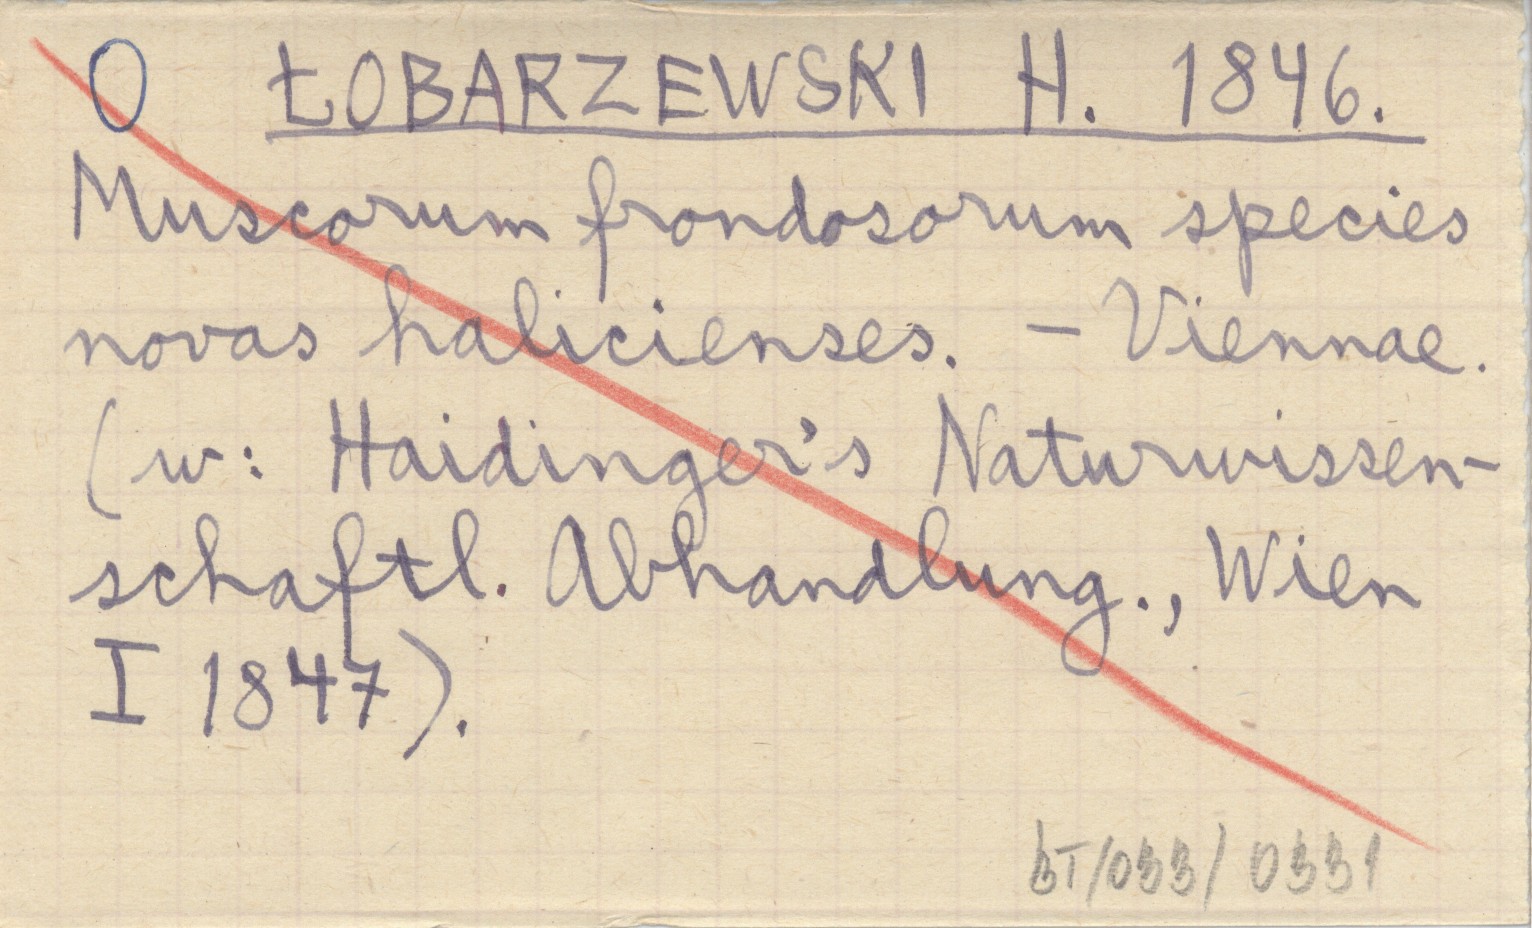 O ŁOBARZEWSKI H. 1846.
Muscorum frondosorum species
novas halicienses. – Viennae.
(w: Haidinger's Naturwissen-
schaftl. Abhandlung., Wien
I 1847).
BT/033/0331